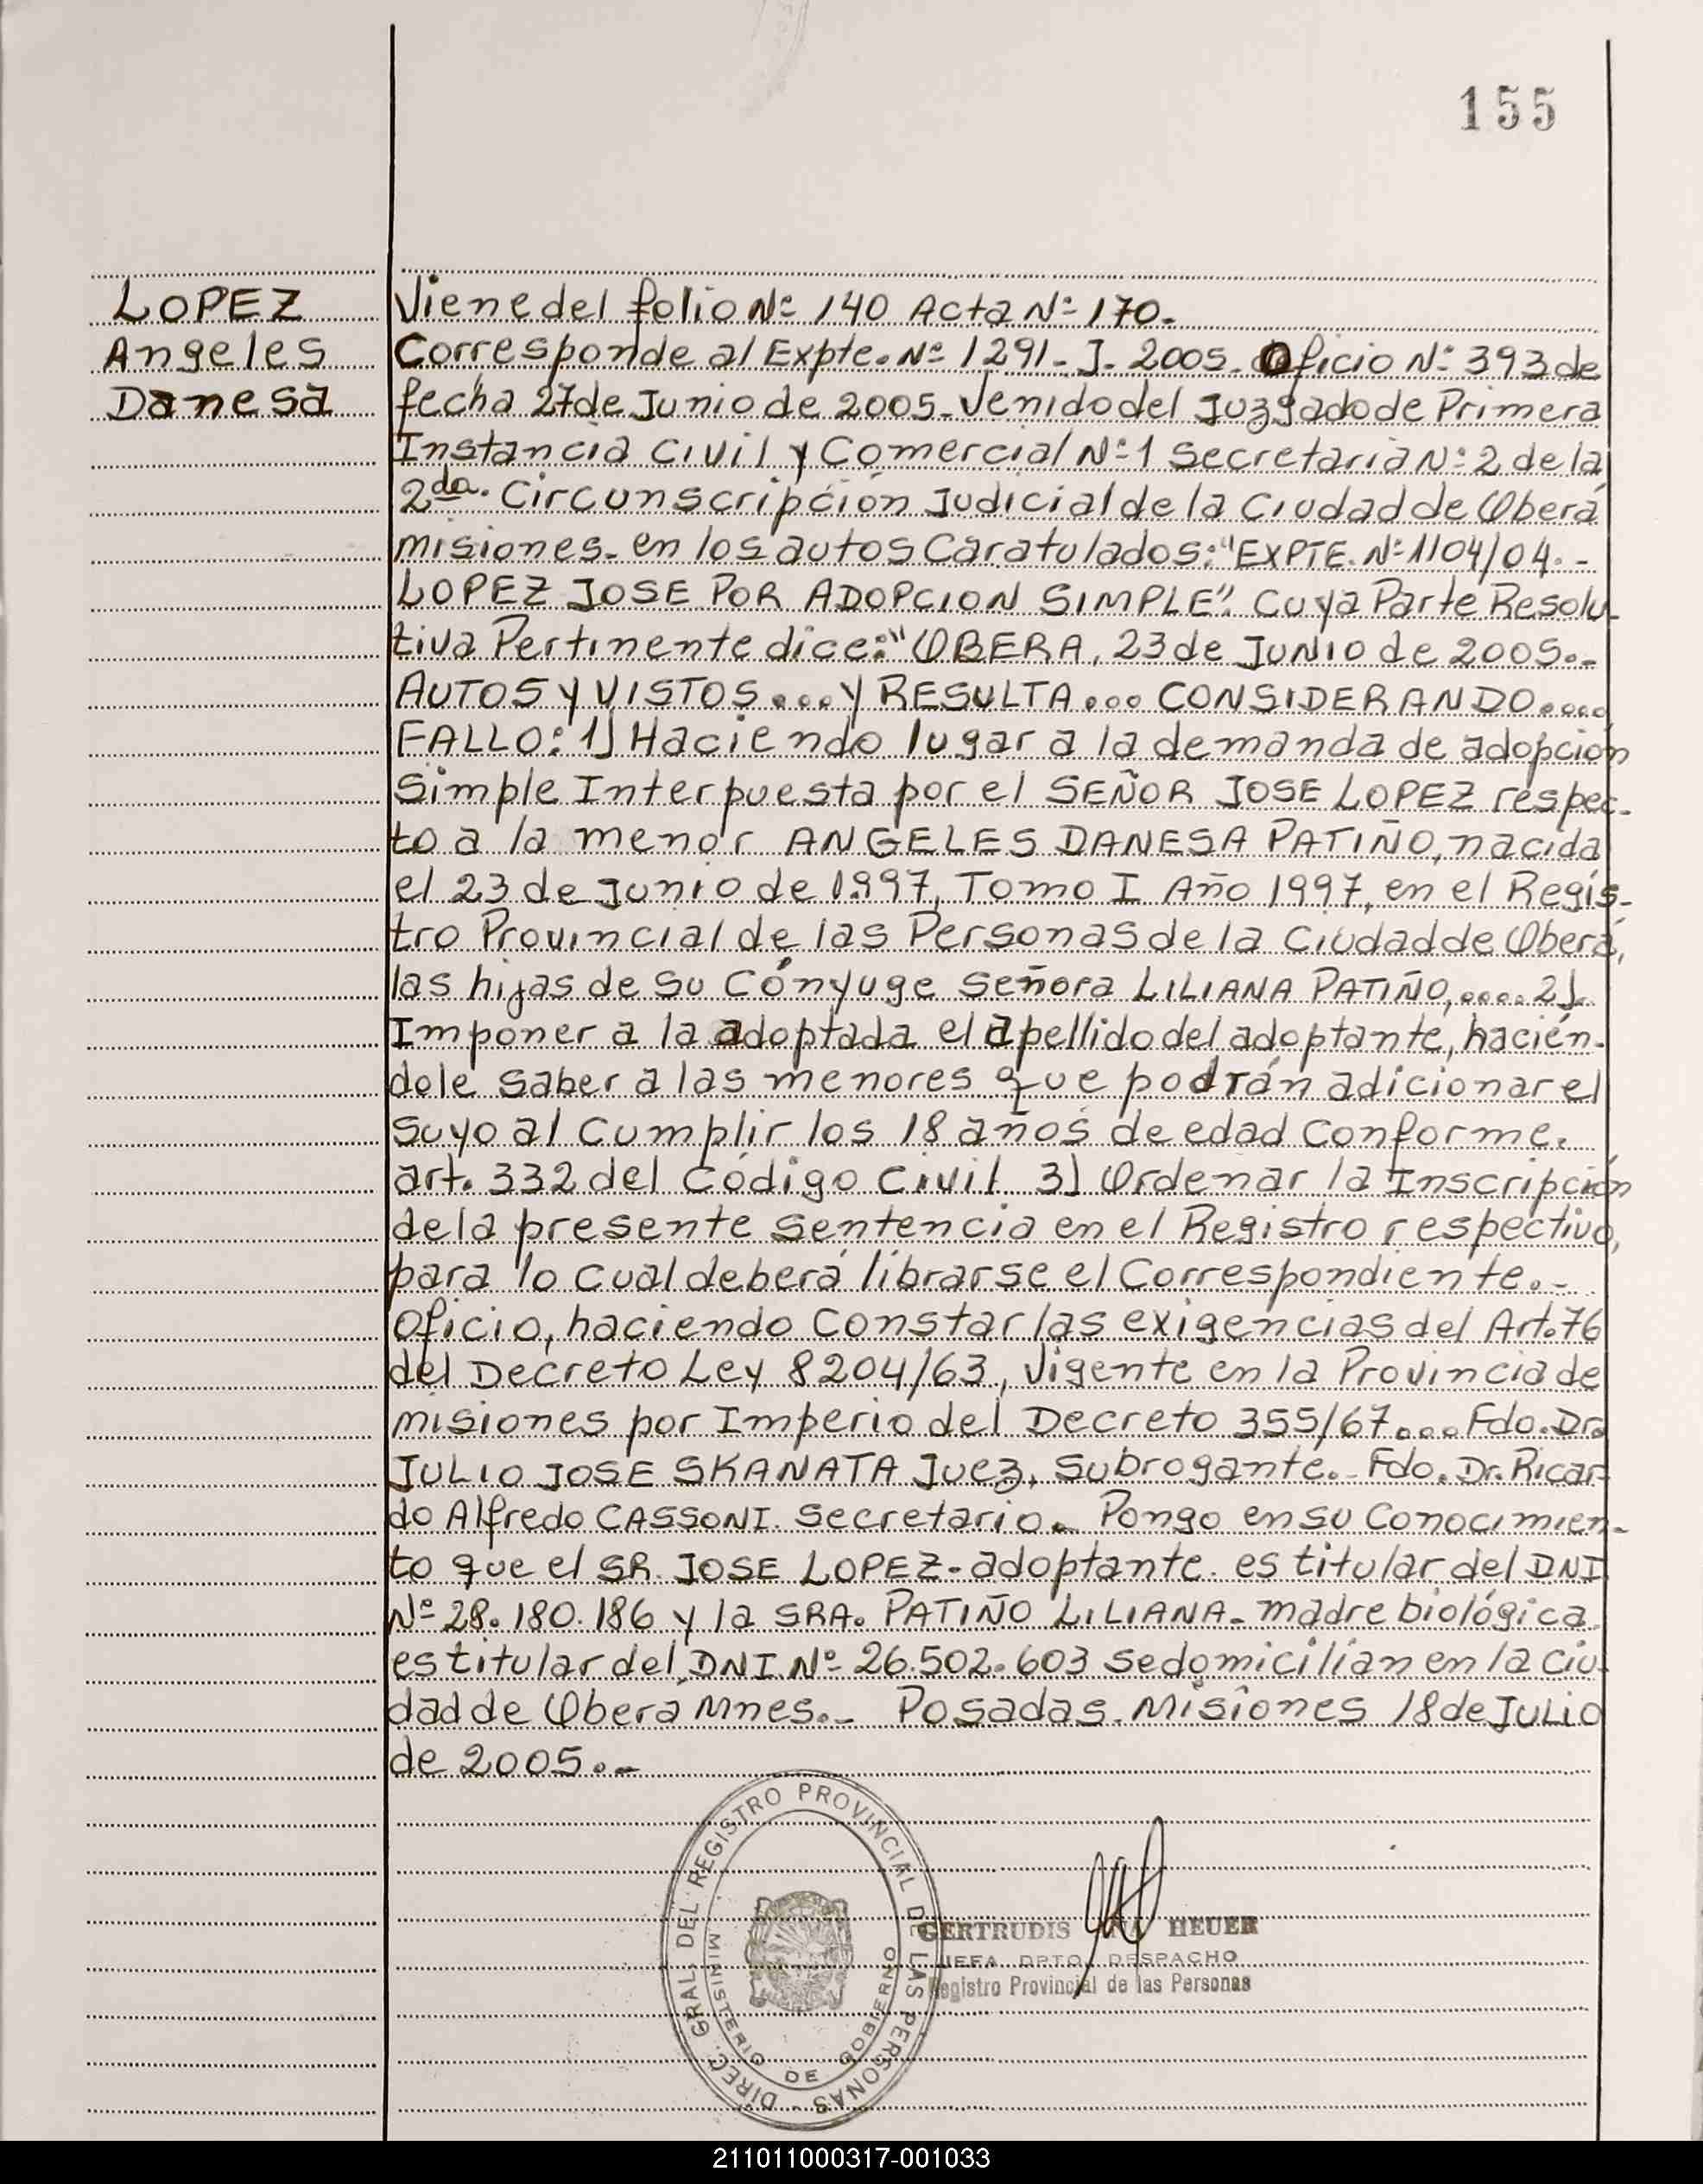 155
LOPEZ
Angeles
Danesa
Viene del folio Nº 140 Acta Nº 170.
Corresponde al Expte. Nº 1291-J-2005. Oficio Nº 393 de
fecha 27 de Junio de 2005- Venido del Juzgado de Primera
Instancia Civil y Comercial Nº 1 Secretaria Nº 2 de la
2da. Circunscripción Judicial de la Ciudad de Oberá
misiones- en los autos Caratulados: "EXPTE. Nº 1104/04.-
LOPEZ JOSE POR ADOPCION SIMPLE". Cuya Parte Resolu-
tiva Pertinente dice: "OBERA, 23 de JUNIO de 2005.-
AUTOS Y VISTOS... Y RESULTA... CONSIDERANDO....
FALLO: 1) Haciendo lugar a la demanda de adopción
Simple Interpuesta por el SEÑOR JOSE LOPEZ respec-
to a la menor ANGELES DANESA PATIÑO, nacida
el 23 de Junio de 1997, Tomo I Año 1997, en el Regis-
tro Provincial de las Personas de la Ciudad de Oberá,
las hijas de su Cónyuge Señora LILIANA PATIÑO,.... 2)
Imponer a la adoptada el apellido del adoptante, hacién-
dole saber a las menores que podrán adicionar el
suyo al cumplir los 18 años de edad conforme.
art. 332 del Código Civil 3) Ordenar la Inscripción
de la presente sentencia en el Registro respectivo,
para lo cual deberá librarse el Correspondiente.-
Oficio, haciendo Constar las exigencias del Art. 76
del Decreto Ley 8204/63, Vigente en la Provincia de
misiones por Imperio del Decreto 355/67... Fdo. Dr.
JULIO JOSE SKANATA Juez, Subrogante.- Fdo. Dr. Ricar-
do Alfredo CASSONI. Secretario. Pongo en su Conocimien-
to que el SR. JOSE LOPEZ- adoptante. es titular del DNI
Nº 28.180.186 y la SRA. PATIÑO LILIANA- madre biológica
es titular del DNI. Nº 26.502.603 se domicilían en la ciu-
dad de Oberá Mnes.- Posadas. Misiones 18 de JULIO
de 2005.-
DIREC. GRAL. DEL REGISTRO PROVINCIAL DE LAS PERSONAS -
MINISTERIO DE GOBIERNO
GERTRUDIS HEUER
JEFA DPTO. DESPACHO
Registro Provincial de las Personas
211011000317-001033